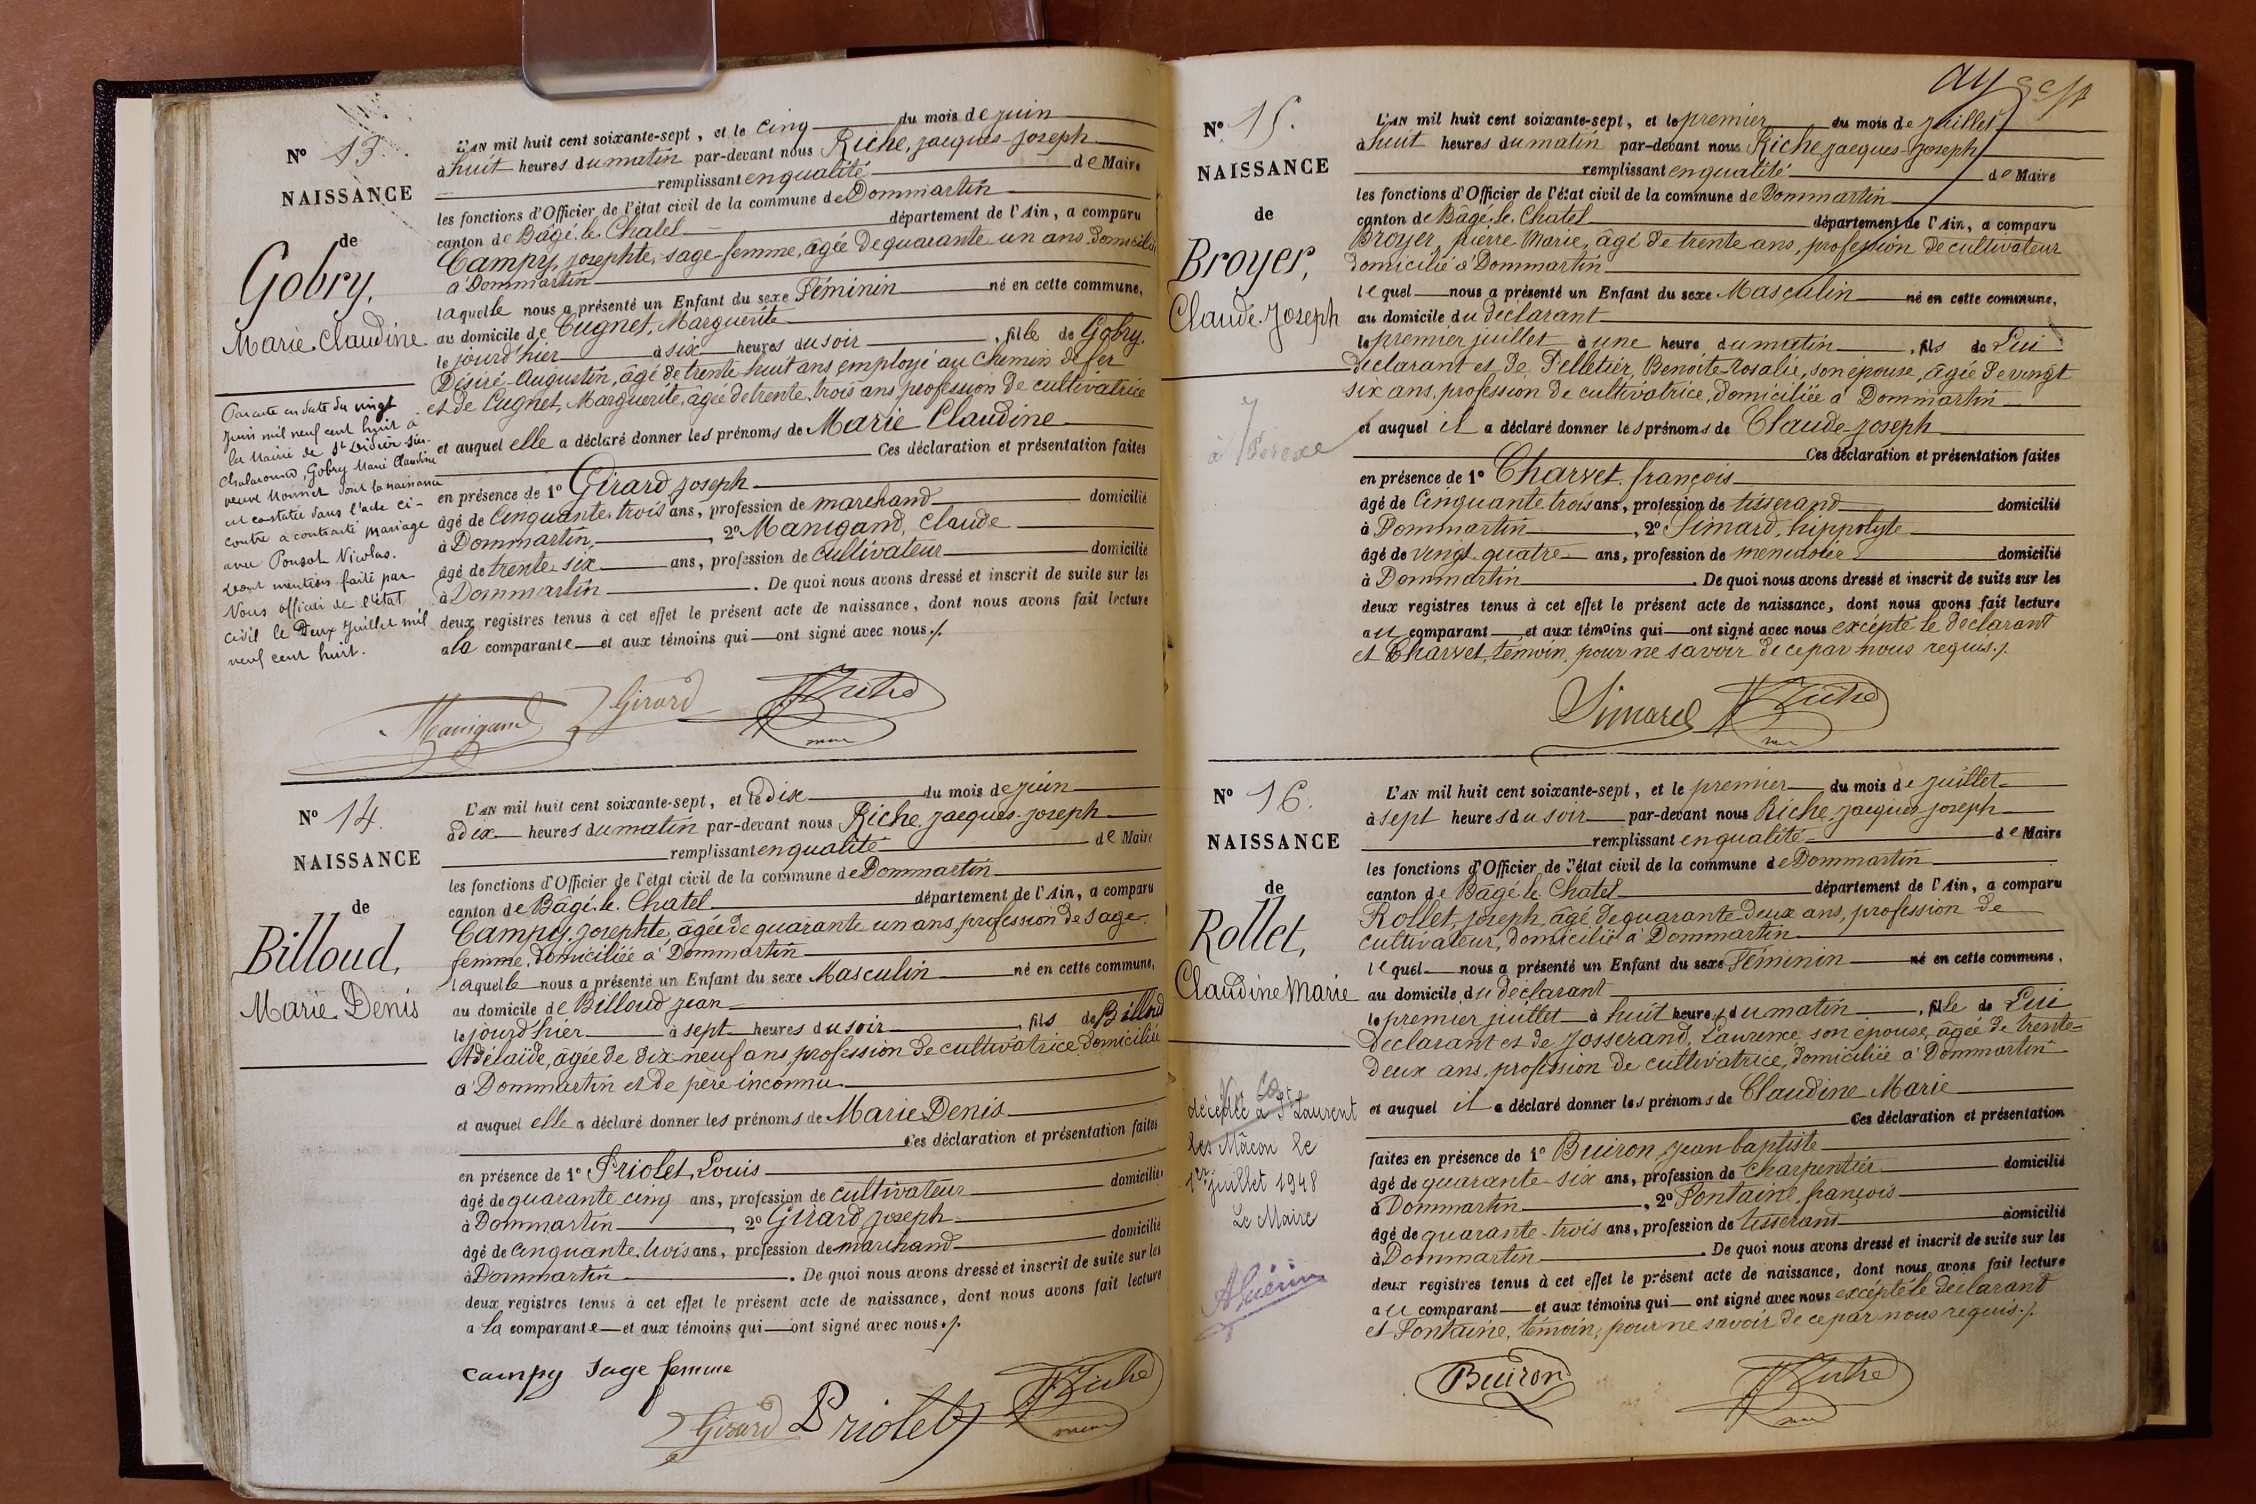 Nº 13.
NAISSANCE
de
Gobry,
Marie-Claudine
L'AN mil huit cent soixante-sept, et le cinq du mois de juin
à huit heures du matin par-devant nous Riche, jacques-joseph
remplissant en qualité de Maire
les fonctions d'Officier de l'état civil de la commune de Dommartin
canton de Bâgé-le-Chatel département de l'Ain, a comparu
Campy, josephte, sage-femme, âgée de quarante un ans domiciliée
à Dommartin
laquelle nous a présenté un Enfant du sexe Féminin né en cette commune,
au domicile de Cugnet, Marguerite
le jourd'hier à six heures du soir, fille de Gobry,
Désiré-Augustin, âgé de trente huit ans employé au chemin de fer
et de Cugnet, Marguerite, âgée de trente-trois ans profession de cultivatrice
et auquel elle a déclaré donner les prénoms de Marie Claudine
Ces déclaration et présentation faites
en présence de 1º Girard joseph
âgé de cinquante-trois ans, profession de marchand domicilié
à Dommartin, 2º Manigand, Claude
âgé de trente-six ans, profession de cultivateur domicilié
à Dommartin. De quoi nous avons dressé et inscrit de suite sur les
deux registres tenus à cet effet le présent acte de naissance, dont nous avons fait lecture
à la comparante et aux témoins qui ont signé avec nous./.
en date du vingt
juin mil neuf cent huit à
la Mairie de St Didier-sur-
Chalaronne, Gobry Marie Claudine
veuve Monnet dont la naissance
est constatée dans l'acte ci-
contre a contracté mariage
avec Ponsot Nicolas.
dont mention faite par
Nous officier de l'état
civil le Deux Juillet mil
neuf cent huit.
Manigand Girard J Riche
maire
Nº 14.
NAISSANCE
de
Billoud,
Marie-Denis
L'AN mil huit cent soixante-sept, et le dix du mois de juin
à dix heures du matin par-devant nous Riche, jacques-joseph
remplissant en qualité de Maire
les fonctions d'Officier de l'état civil de la commune de Dommartin
canton de Bâgé-le-Chatel département de l'Ain, a comparu
Campy, josephte, âgée de quarante un ans, profession de sage-
femme, domiciliée à Dommartin
laquelle nous a présenté un Enfant du sexe Masculin né en cette commune,
au domicile de Billoud jean
le jourd'hier à sept heures du soir, fils de Billoud
Adélaïde, âgée de dix-neuf ans profession de cultivatrice, domiciliée
à Dommartin et de père inconnu
et auquel elle a déclaré donner les prénoms de Marie Denis
Ces déclaration et présentation faites
en présence de 1º Priolet, Louis
âgé de quarante cinq ans, profession de cultivateur domicilié
à Dommartin, 2º Girard, joseph
âgé de cinquante-trois ans, profession de marchand domicilié
à Dommartin. De quoi nous avons dressé et inscrit de suite sur les
deux registres tenus à cet effet le présent acte de naissance, dont nous avons fait lecture
a la comparante et aux témoins qui ont signé avec nous./.
campy sage femme
Girard Priolet J Riche
maire
Nº 15.
NAISSANCE
de
Broyer,
Claude-Joseph
L'AN mil huit cent soixante-sept, et le premier du mois de juillet
à huit heures du matin par-devant nous Riche jacques-joseph
remplissant en qualité de Maire
les fonctions d'Officier de l'état civil de la commune de Dommartin
canton de Bâgé-le-Chatel département de l'Ain, a comparu
Broyer, pierre Marie, âgé de trente ans, profession de cultivateur
domicilié à Dommartin
lequel nous a présenté un Enfant du sexe Masculin né en cette commune,
au domicile du déclarant
le premier juillet à une heure du matin, fils de Lui
déclarant et de Pelletier, Benoîte-Rosalie, son épouse, âgée de vingt
six ans, profession de cultivatrice, domiciliée à Dommartin
et auquel il a déclaré donner les prénoms de Claude-joseph
Ces déclaration et présentation faites
en présence de 1º Charvet, françois
âgé de cinquante trois ans, profession de tisserand domicilié
à Dommartin, 2º Simard, hippolyte
âgé de vingt-quatre ans, profession de menuisier domicilié
à Dommartin. De quoi nous avons dressé et inscrit de suite sur les
deux registres tenus à cet effet le présent acte de naissance, dont nous avons fait lecture
au comparant et aux témoins qui ont signé avec nous excepté le déclarant
et Charvet, témoin, pour ne savoir de ce par nous requis./.
Simard J Riche
Nº 16.
NAISSANCE
de
Rollet,
Claudine Marie
L'AN mil huit cent soixante-sept, et le premier du mois de juillet
à sept heures du soir par-devant nous Riche, jacques-joseph
remplissant en qualité de Maire
les fonctions d'Officier de l'état civil de la commune de Dommartin
canton de Bâgé-le-Chatel département de l'Ain, a comparu
Rollet, joseph, âgé de quarante-deux ans, profession de
cultivateur, domicilié à Dommartin
lequel nous a présenté un Enfant du sexe Féminin né en cette commune,
au domicile du déclarant
le premier juillet à huit heures du matin, fille de Lui
déclarant et de Josserand, Laurence son épouse, âgée de trente-
deux ans, profession de cultivatrice, domiciliée à Dommartin
et auquel il a déclaré donner les prénoms de Claudine Marie
Ces déclaration et présentation
faites en présence de 1º Buiron, jean-baptiste
âgé de quarante-six ans, profession de charpentier domicilié
à Dommartin, 2º Fontaine, françois
âgé de quarante-trois ans, profession de tisserand domicilié
à Dommartin. De quoi nous avons dressé et inscrit de suite sur les
deux registres tenus à cet effet le présent acte de naissance, dont nous avons fait lecture
au comparant et aux témoins qui ont signé avec nous excepté le déclarant
et Fontaine, témoin, pour ne savoir de ce par nous requis./.
décédée à St Laurent
les Mâcon le
1er juillet 1948
Le Maire
Buiron J Riche